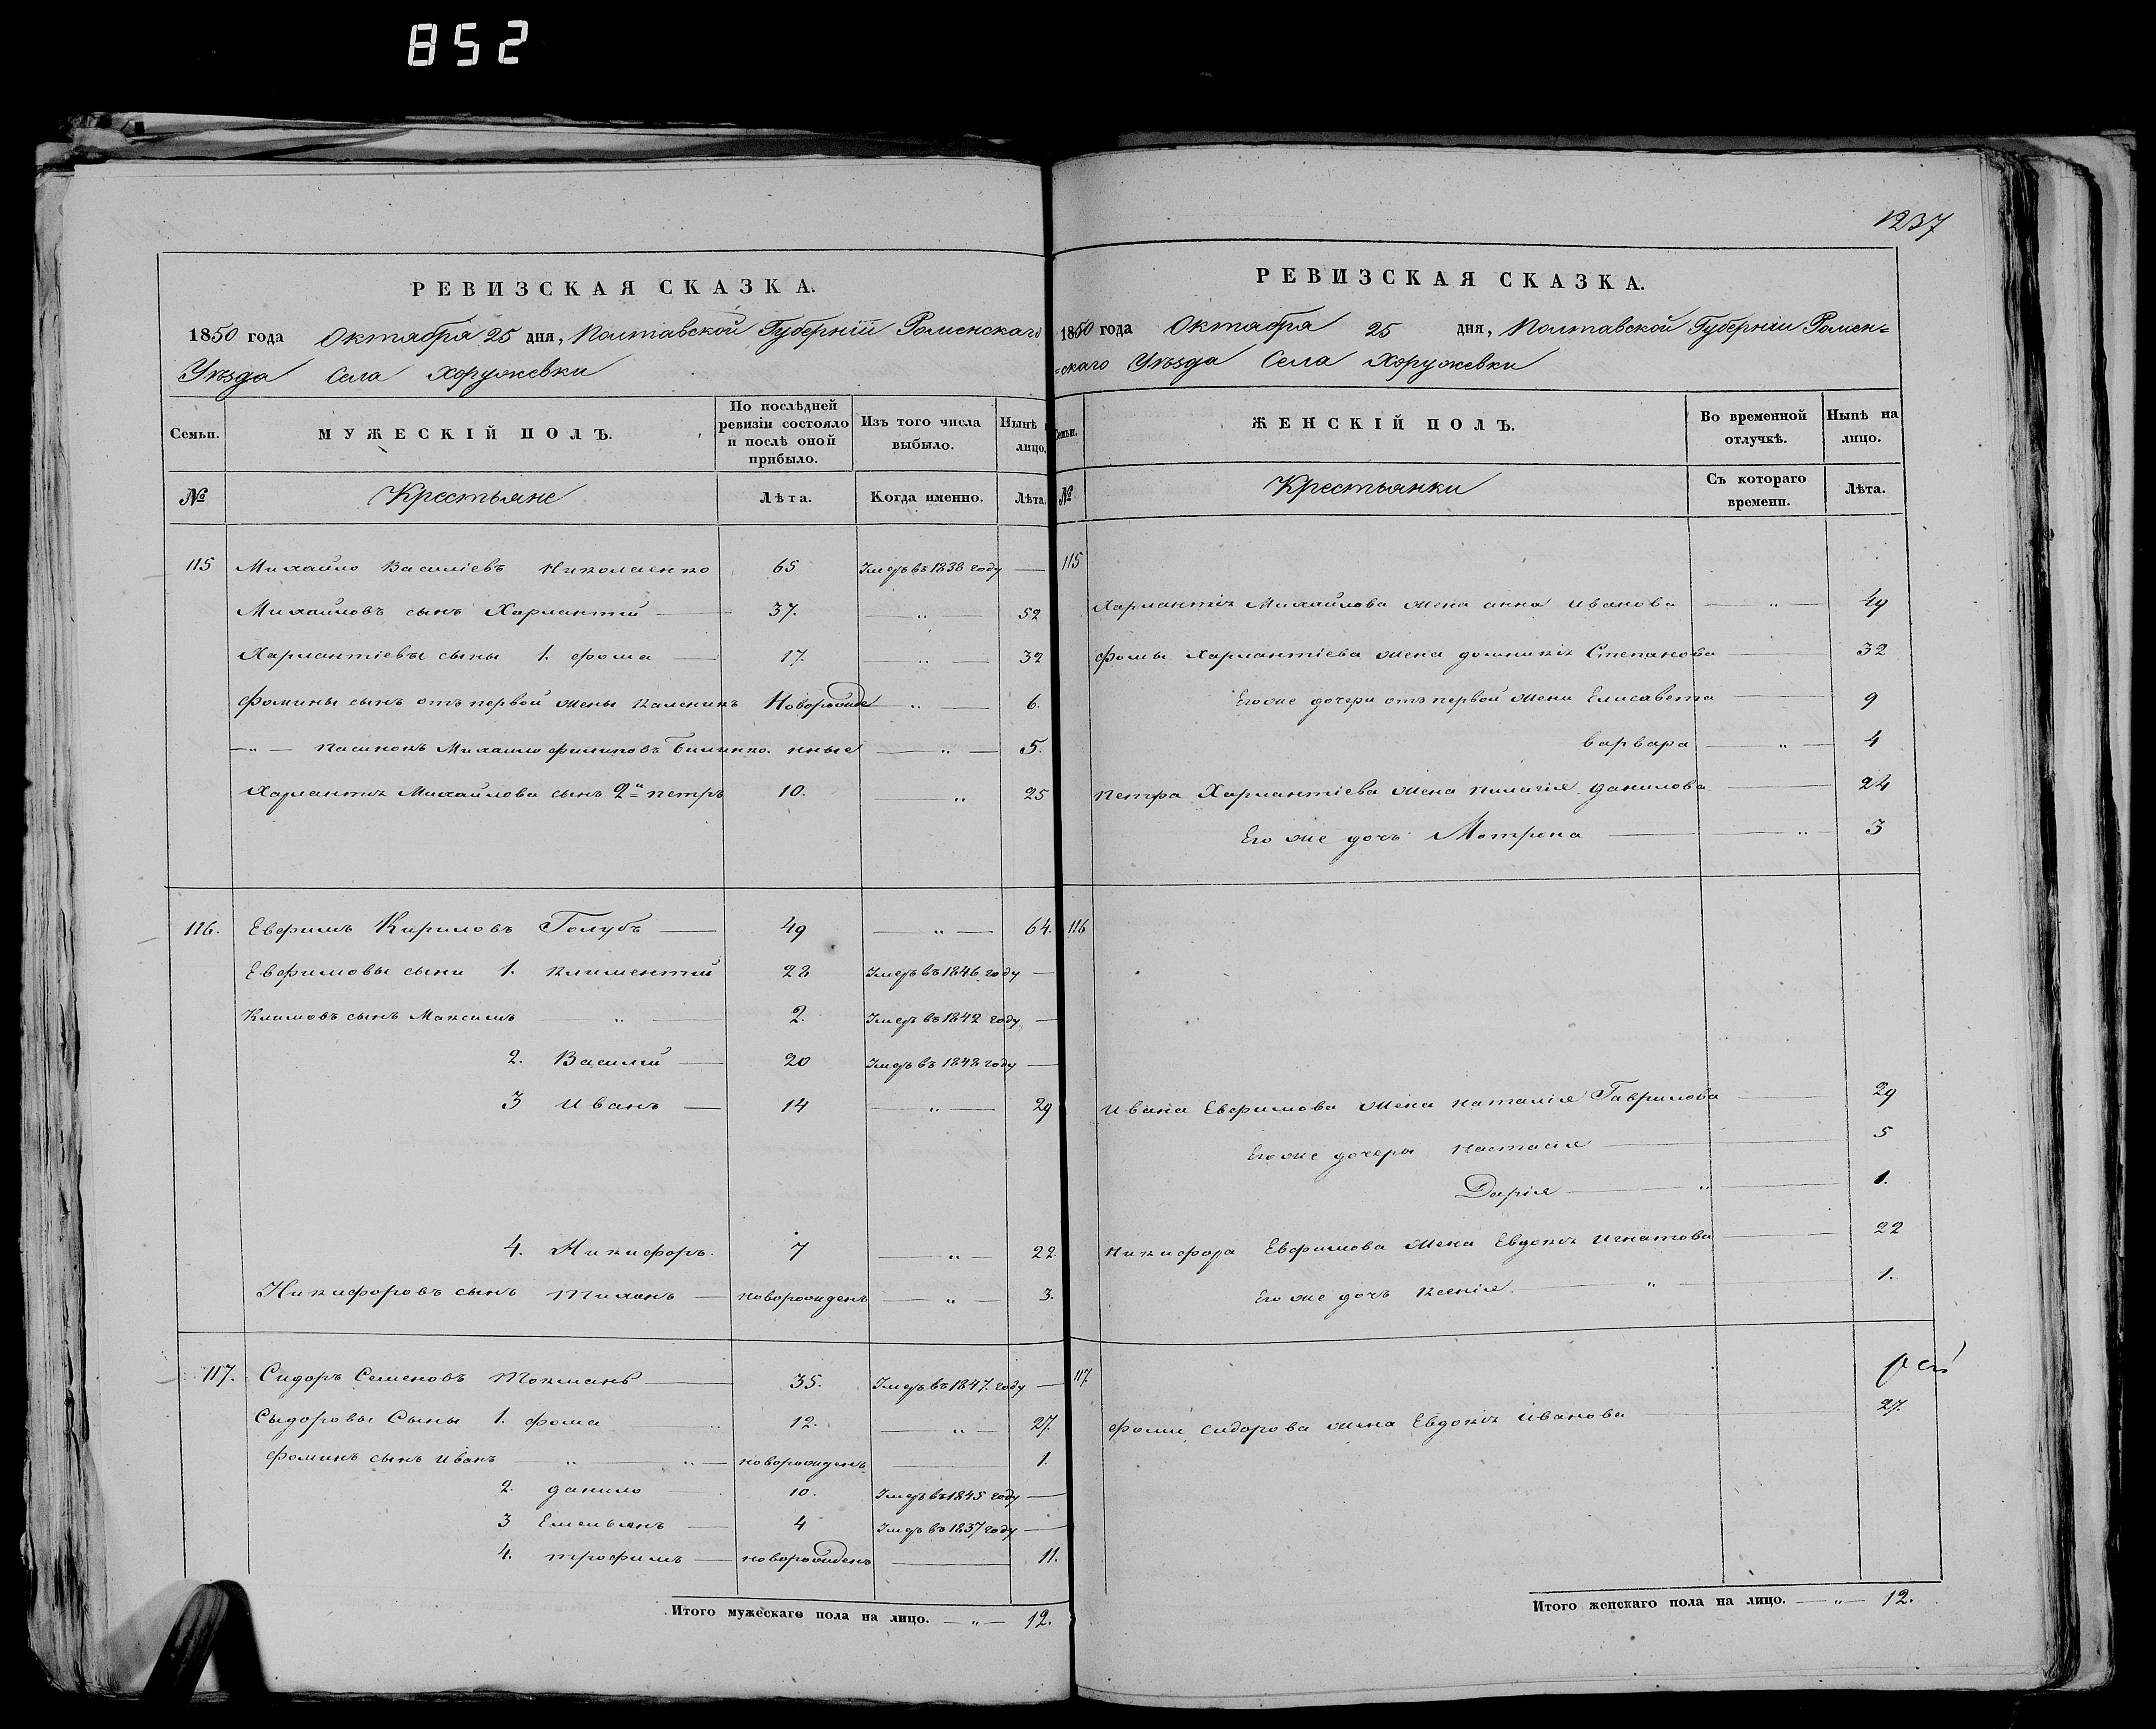 852
РЕВИЗСКАЯ СКАЗКА.
1850 года Октября 25 дня, Полтавской Губерніи Роменскаго
Уѣзда Села Хоружевки
Семьи.
МУЖЕСКІЙ ПОЛЪ.
По послѣдней ревизіи состояло и послѣ оной прибыло.
Изъ того числа выбыло.
Нынѣ на лицо.
№ Крестьяне Лѣта. Когда именно. Лѣта.
115 Михайло Василіевъ Николаенко 65 Умеръ въ 1838 году —
Михайловъ сынъ Харлантій — 37. — „ — 52
Харлантіевы сыны 1. фома — 17. — „ — 32
Фомины сынъ отъ первой жены Каленикъ Новорожде — „ — 6.
— „ — пасинокъ Михайло филиповъ нные — „ — 5.
Харлантія Михайлова сынъ 2й петръ 10. „ 25
116. Евфимъ Кириловъ Голубъ — 49 — „ — 64.
Евфимовы сыни 1. Климентій 28 Умеръ въ 1846 году —
Климовъ сынъ Максимъ „ — 2. Умеръ въ 1842 году —
2. Василій — 20 Умеръ въ 1848 году —
3 Иванъ — 14 — „ — 29
4. Никифоръ. 7 — „ — 22.
Никифоровъ сынъ Тихонъ — новорожденъ — „ — 3.
117. Сидоръ Семеновъ Токмань — 35. Умеръ въ 1847. году —
Сыдоровы Сыны 1. фома „ 12. — „ — 27.
фоминъ сынъ Иванъ — „ — „ — новорожденъ — 1.
2. данило — 10. Умеръ въ 1845 году —
3 Емельянъ — 4 Умеръ въ 1837 году —
4. трофимъ — новорожденъ — 11.
Итого мужескаго пола на лицо. — „ — 12.
1237
РЕВИЗСКАЯ СКАЗКА.
1850 года Октября 25 дня, Полтавской Губерніи Ромен=
=скаго Уѣзда Села Хоружевки
Семьи.
ЖЕНСКІЙ ПОЛЪ.
Во временной отлучкѣ.
Нынѣ на лицо.
№ Крестьянки Съ котораго времени. Лѣта.
115
Харлантія Михайлова жена анна Иванова — „ — 49
фомы Харлантіева жена домникія Степанова — 32
Его же дочери отъ первой жени Елисавета — 9
варвара — „ — 4
Петра Харлантіева жена пилагія данилова — 24
Его же дочъ Мотрона — „ — 3
116
Ивана Евфимова жена наталія Гаврилова — 29
Его же дочеры настасія — 5
Дарія — „ — 1.
никифора Евфимова жена Евдокія Игнатова — 22
Его же дочъ Ксенія — „ — 1.
117.
фоми сидорова жена Евдокія Иванова 27.
Итого женскаго пола на лицо. — „ — 12.